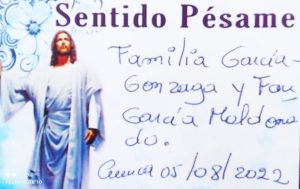 Sentido Pésame
Familia García-
Gonzaga y Fam
García Maldona
do.
Cuenca 05/08/2022